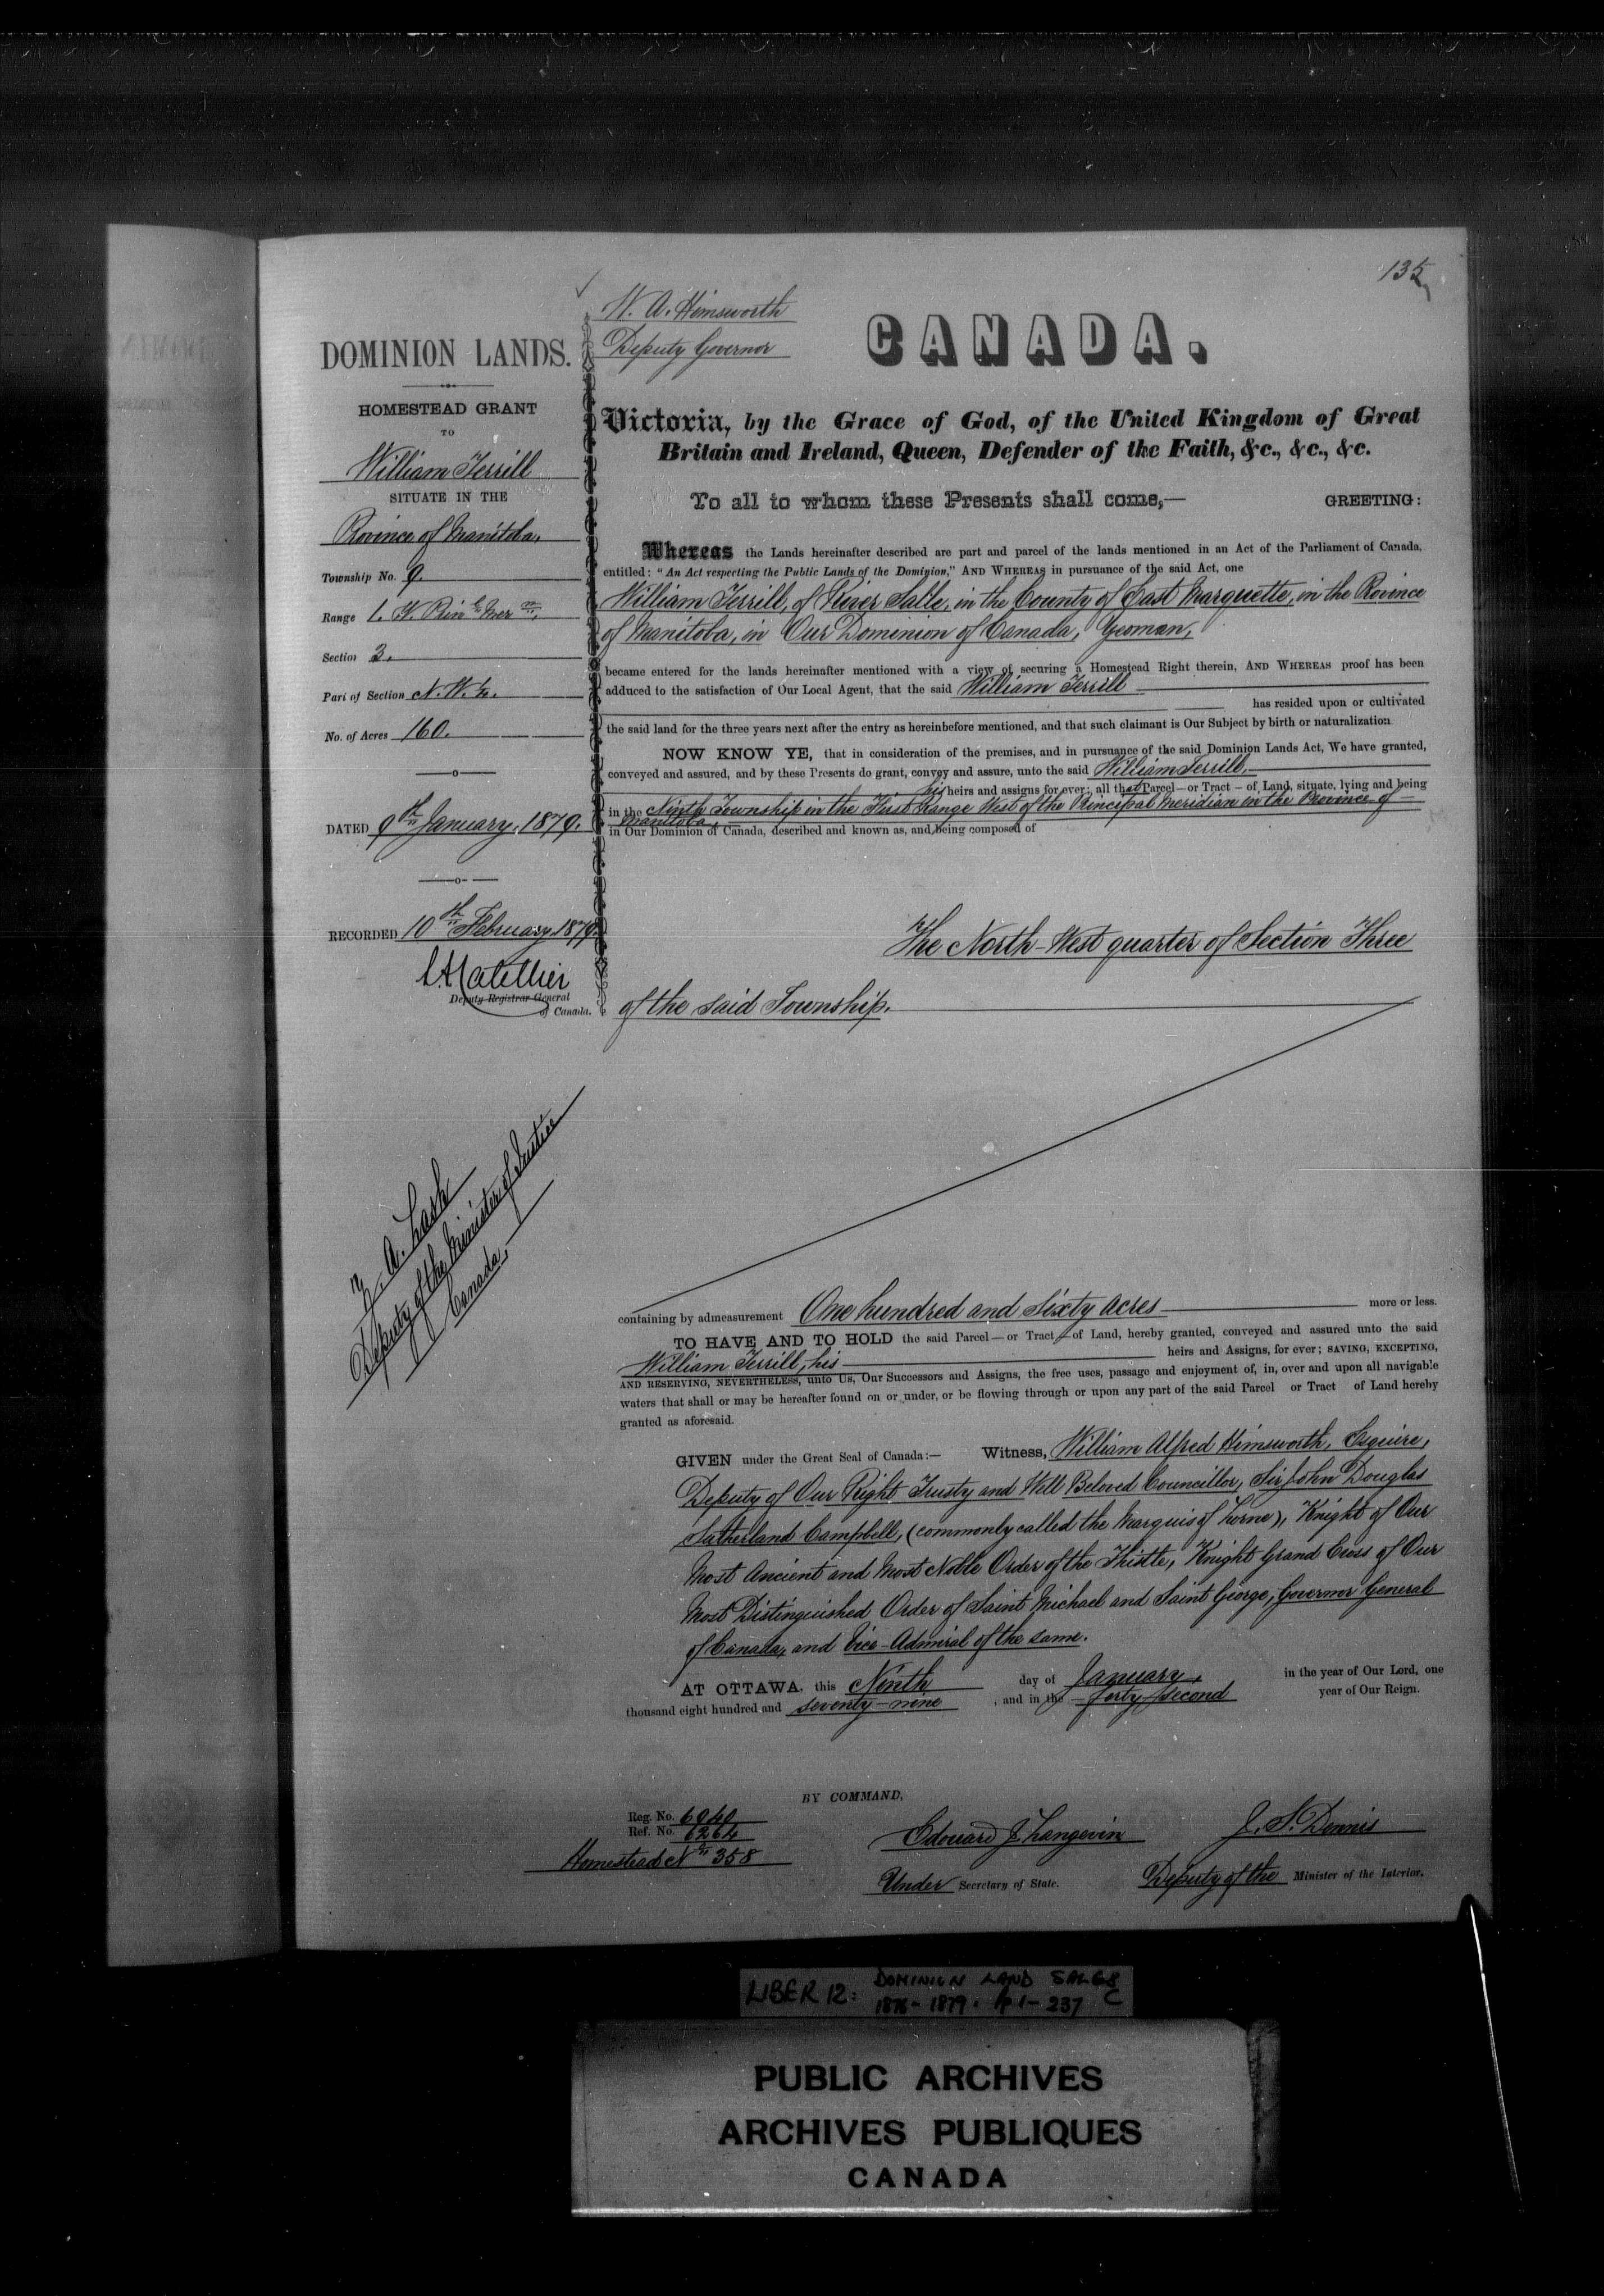 135
W. A. Himsworth
Deputy Governor
CANADA.
DOMINION LANDS.
HOMESTEAD GRANT
TO
William Terrill
SITUATE IN THE
Province of Manitoba,
Township No. 9.
Range 1. W. Prin l Mer n.
Section 3.
Part of Section N. W. ¼.
No. of Acres 160.
DATED 9th January, 1879.
RECORDED 10th February 1879.
Deputy Registrar General
of Canada.
Z. A. Lash
Deputy of the Minister of Justice
Canada,
Victoria, by the Grace of God, of the United Kingdom of Great
Britain and Ireland, Queen, Defender of the Faith, &c., &c., &c.
To all to whom these Presents shall come,— GREETING:
Whereas the Lands hereinafter described are part and parcel of the lands mentioned in an Act of the Parliament of Canada,
entitled: "An Act respecting the Public Lands of the Dominion," AND WHEREAS in pursuance of the said Act, one
William Terrill, of River Salle, in the County of East Marquette, in the Province
of Manitoba, in Our Dominion of Canada, Yeoman,
became entered for the lands hereinafter mentioned with a view of securing a Homestead Right therein, AND WHEREAS proof has been
adduced to the satisfaction of Our Local Agent, that the said William Terrill
has resided upon or cultivated
the said land for the three years next after the entry as hereinbefore mentioned, and that such claimant is Our Subject by birth or naturalization.
NOW KNOW YE, that in consideration of the premises, and in pursuance of the said Dominion Lands Act, We have granted,
conveyed and assured, and by these Presents do grant, convey and assure, unto the said William Terrill,
his heirs and assigns for ever; all that Parcel—or Tract—of Land, situate, lying and being
in the Ninth Township in the First Range West of the Principal Meridian in the Province of
Manitoba,
in Our Dominion of Canada, described and known as, and being composed of
The North-West quarter of Section Three
of the said Township.
containing by admeasurement One hundred and Sixty Acres more or less.
TO HAVE AND TO HOLD the said Parcel—or Tract—of Land, hereby granted, conveyed and assured unto the said
William Terrill, his heirs and Assigns, for ever; SAVING, EXCEPTING,
AND RESERVING, NEVERTHELESS, unto Us, Our Successors and Assigns, the free uses, passage and enjoyment of, in, over and upon all navigable
waters that shall or may be hereafter found on or under, or be flowing through or upon any part of the said Parcel or Tract of Land hereby
granted as aforesaid.
GIVEN under the Great Seal of Canada:— Witness, William Alfred Himsworth, Esquire,
Deputy of Our Right Trusty and Well Beloved Councillor, Sir John Douglas
Sutherland Campbell, (commonly called the Marquis of Lorne), Knight of Our
Most Ancient and Most Noble Order of the Thistle, Knight Grand Cross of Our
Most Distinguished Order of Saint Michael and Saint George, Governor General
of Canada, and Vice-Admiral of the same.
AT OTTAWA, this Ninth day of January, in the year of Our Lord, one
thousand eight hundred and seventy-nine, and in the forty second year of Our Reign.
BY COMMAND,
Reg. No. 6940
Ref. No. 6264
Homestead No 358
Edouard J. Langevin
Under Secretary of State.
J. S. Dennis
Deputy of the Minister of the Interior.
LIBER 12: DOMINION LAND SALES
1876-1879. pp 1-237 C
PUBLIC ARCHIVES
ARCHIVES PUBLIQUES
CANADA